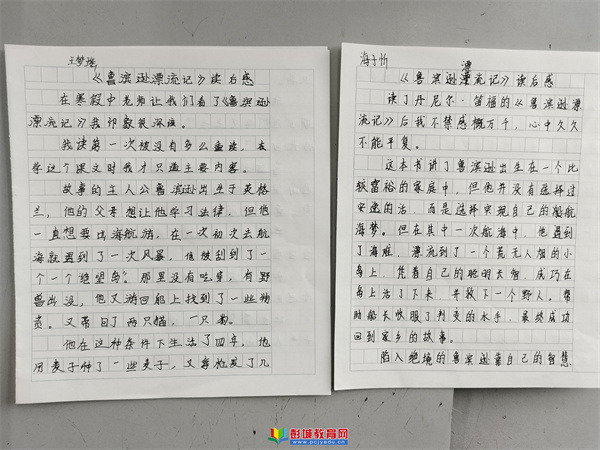 王梦瑶
《鲁滨逊漂流记》读后感
在寒假中老师让我们看了《鲁滨逊
漂流记》我印象很深。
我读第一次被没有多么
学这个课文时我才只道主要内容。
故事的主人公鲁滨逊出生于英格
兰，他的父母想让他学习法律，但他
一直想要出海航游，在一次初次去航
海就遇到了一次风暴，他被刮到了一
个一个绝望岛。那里没有吃穿，有野
兽出没，他又游回船上找到了一些物
资。又带回了两只猫，一只狗。
他在这种条件下生活了四年，他
用麦子种了一些麦子，又拿枪发了几
海子忻
漂
《鲁滨逊漂流记》读后感
读了丹尼尔·笛福的《鲁滨逊漂
流记》后我不禁感概万千，心中久久
不能平复。
这本书讲了鲁滨逊出生在一个比
较富裕的家庭中，但他并没有选择过
安逸的活，而是选择实现自己的航
海梦。但在其中一次航海中，他遇到
了海难，漂流到了一个荒无人烟的小
岛上，凭着自己的聪明大智，成巧在
岛上活了下来，并救下一个野人。帮
助船长收服了判变的水手，最终成功
回到家乡的故事。
陷入绝境的鲁滨逊靠自己的智慧
彭城教育网
www.pcjyedu.cn